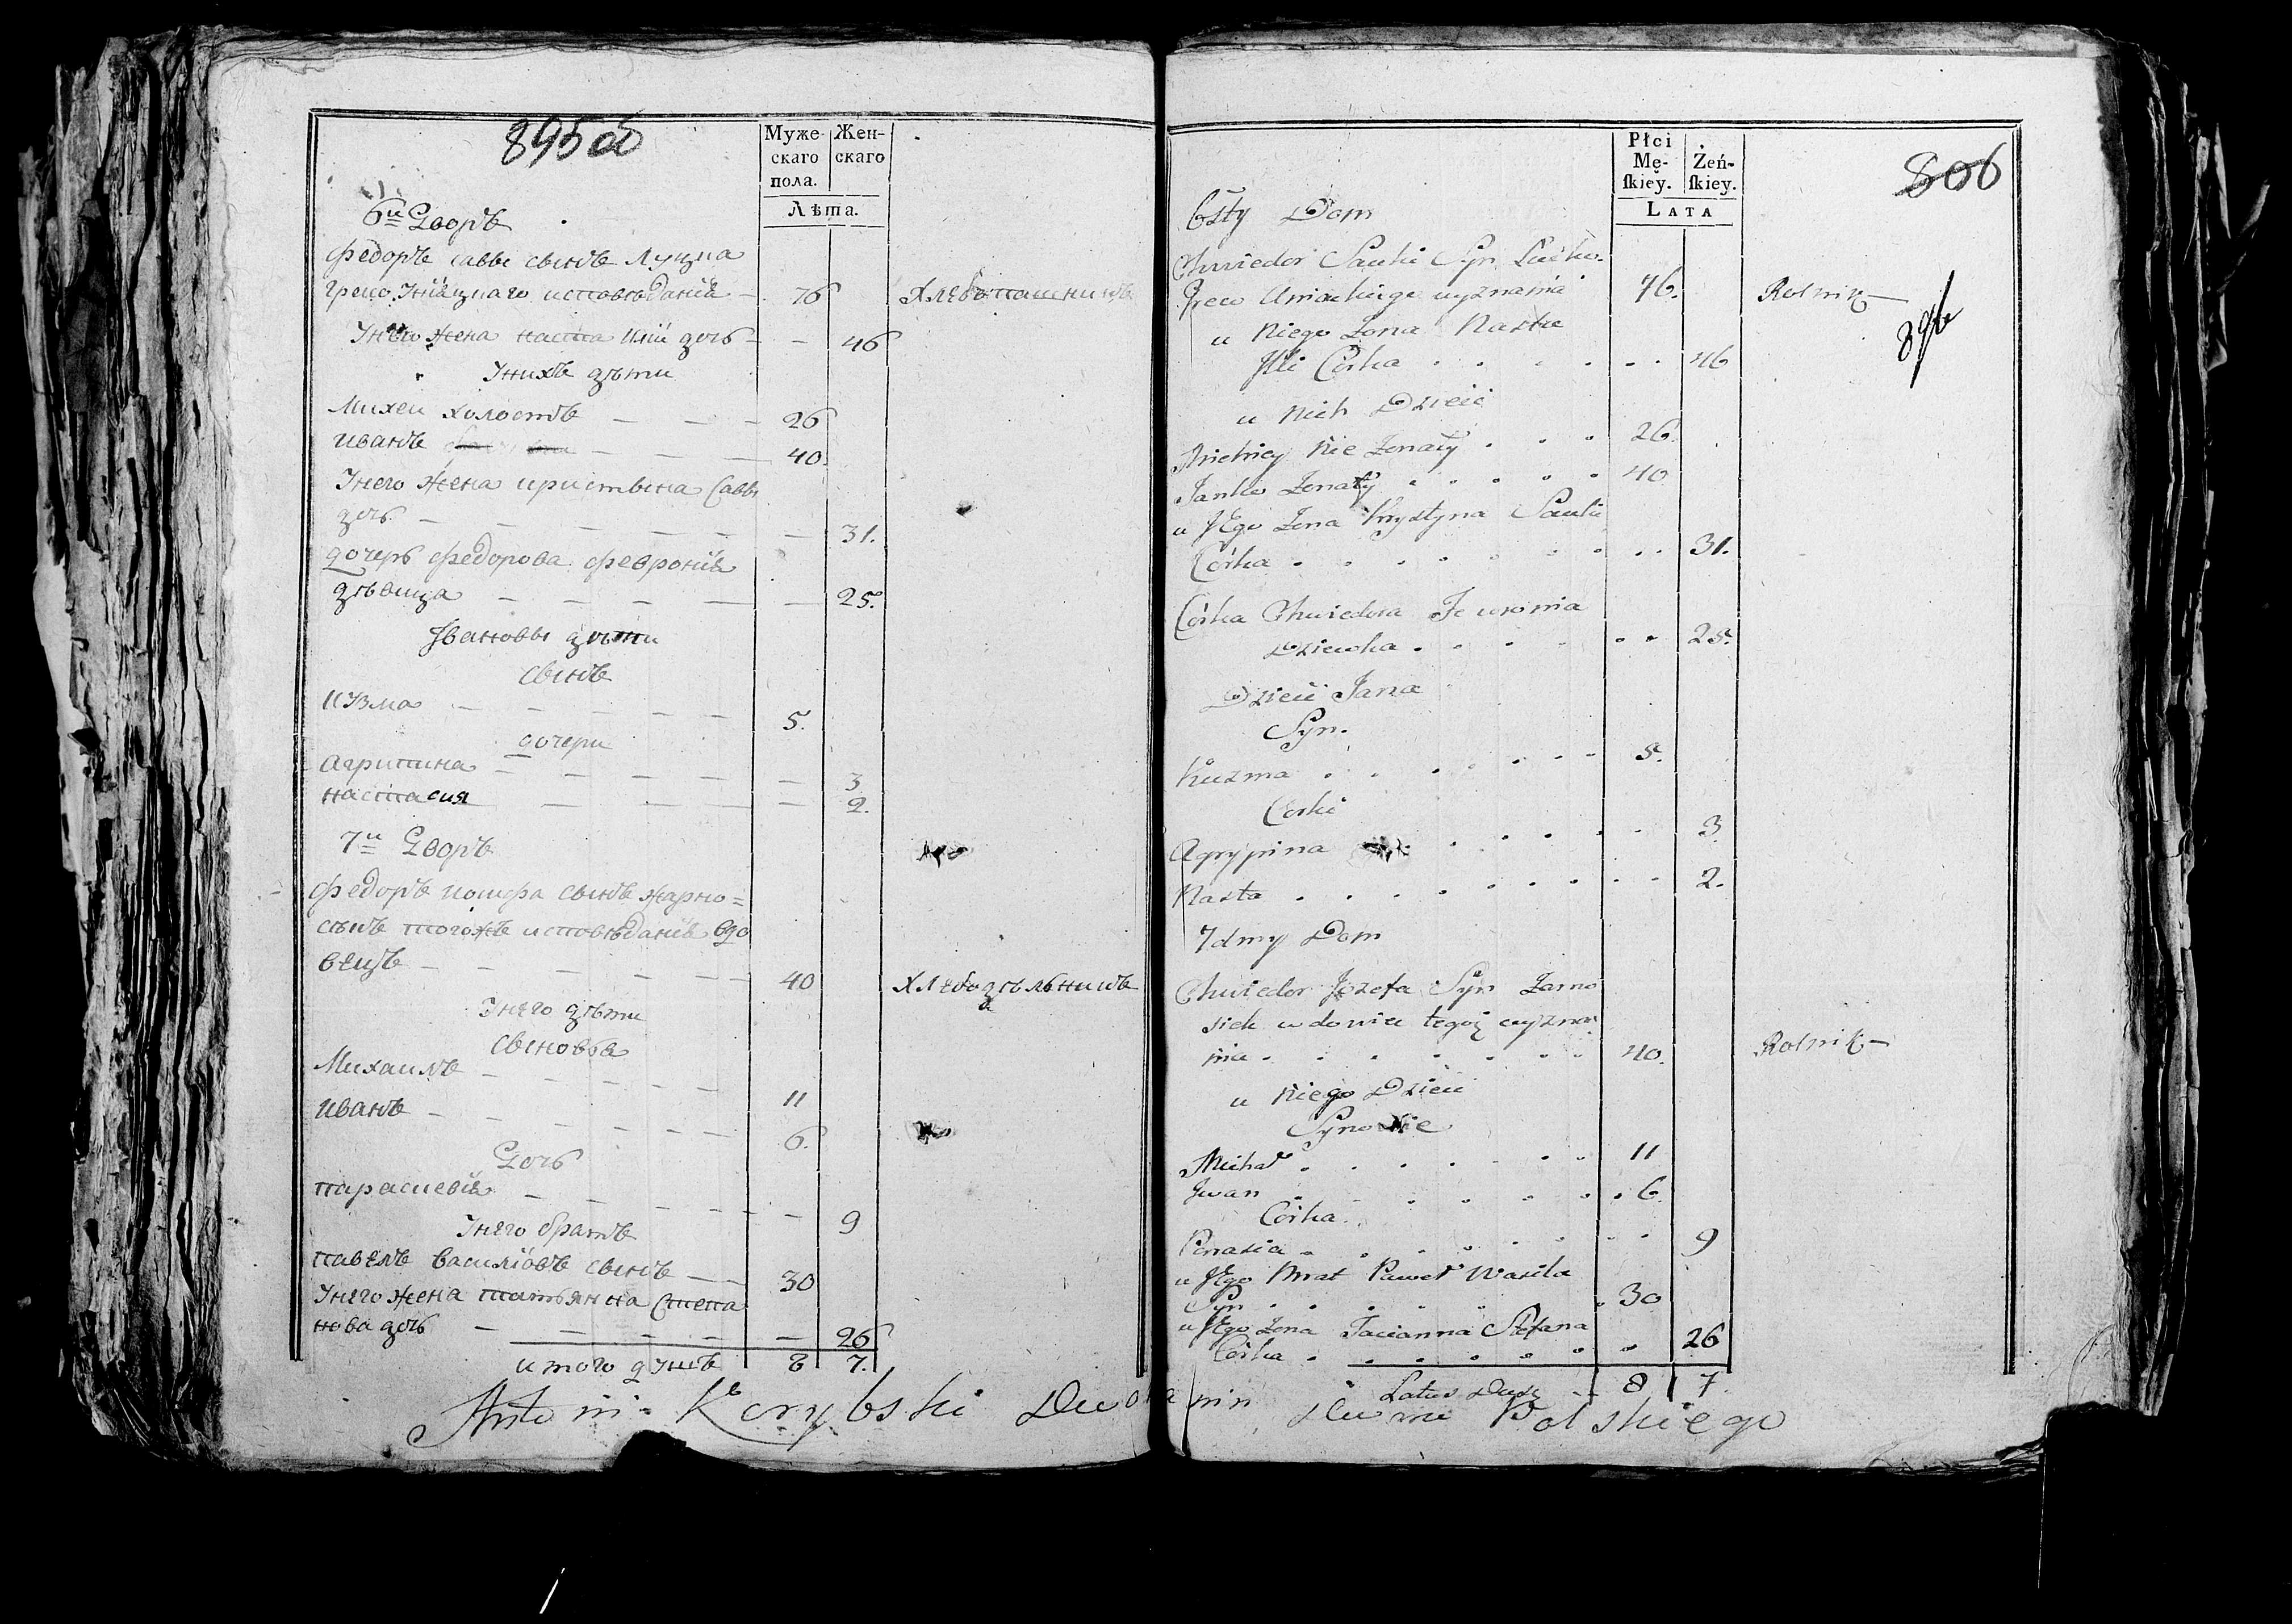 895 об
Муже-
скаго
пола.
Жен-
скаго
Лѣта.
6й Дворъ
Федоръ Саввы сынъ Луцка
греко унияцкаго исповѣдания 76 Хлебопашникъ
У него жена Наста Илии дочь 46
У нихъ дѣти
Михеи холостъ 26
Иванъ 40.
У него жена Кристына Саввы
дочь 31.
дочеръ Федорова Феврония
дѣвица 25.
Ивановы дѣти
Сынъ
Кузма 5.
дочери
Агрипина 3
Настасия 2.
7й Дворъ
Федоръ Иосифа сынъ Жарно=
сѣкъ тогожъ исповѣдания вдо
вецъ 40 Хлебодѣльникъ
У него дѣти
Сыновья
Михаилъ 11
Иванъ 6.
Дочь
Параскевия 9
У него братъ
Павелъ Василиовъ сынъ 30
У него жена Татьянна Степа
нова дочь 26
итого душъ 8 7.
Antoni Korybski Dwo
806
896
Płci
Mę-
ſkiey.
Żeń-
ſkiey.
LATA
6sty Dom
Chwiedor Sawki Syn
Greco Uniackiego wyznania 76. Rolnik
u Niego Zona Nastae
Illi Corka 46
u Nich Dzieci
Michiey Nie Zonaty 26.
Janko Zonaty 40
u Jego Zona Krystyna Sawki
Córka 31.
Córka Chwiedora Fewronia
Dziewka 25.
Dzieci Jana
Syn.
Kuzma 5.
Corki
Agrypina 3
Nasta 2.
7dmy Dom
Chwiedor Jozefa Syn Zarno
siek wdowiec tegoż wyzna
nia 40. Rolnik
u Niego Dzieci
Synowie
Michał 11
Jwan 6.
Córka
Parasia 9
u Jego Brat Paweł Wasila
Syn 30
u Jego Zona Tacianna Stefana
Córka 26
Latus Dusz 8 7.
nin Domu Polskiego